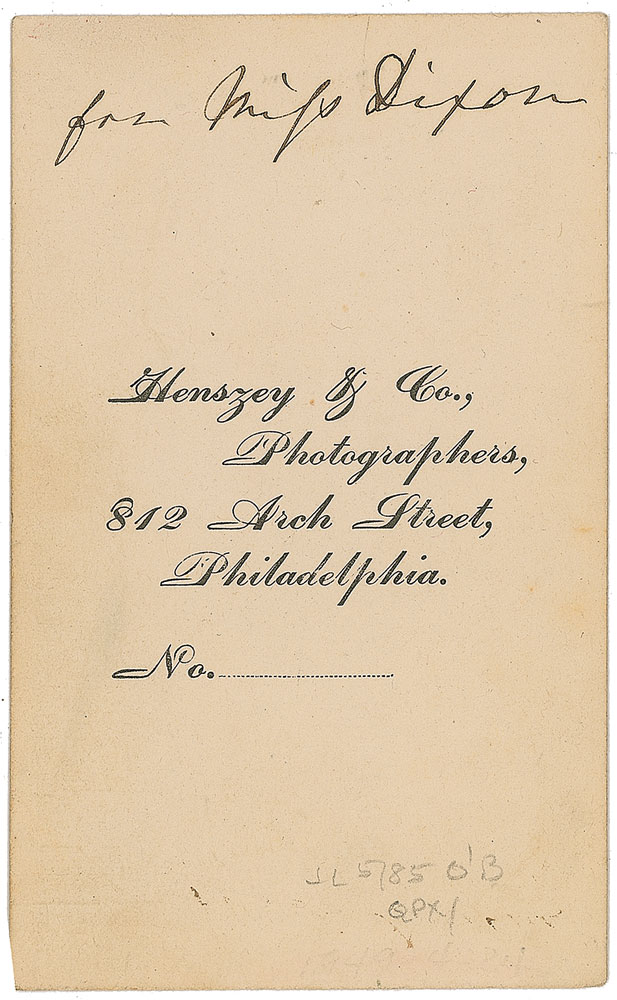 for Miss Dixon
Henszey & Co.,
Photographers,
812 Arch Street,
Philadelphia.
No.
JL 5/85 O'B
QPX/